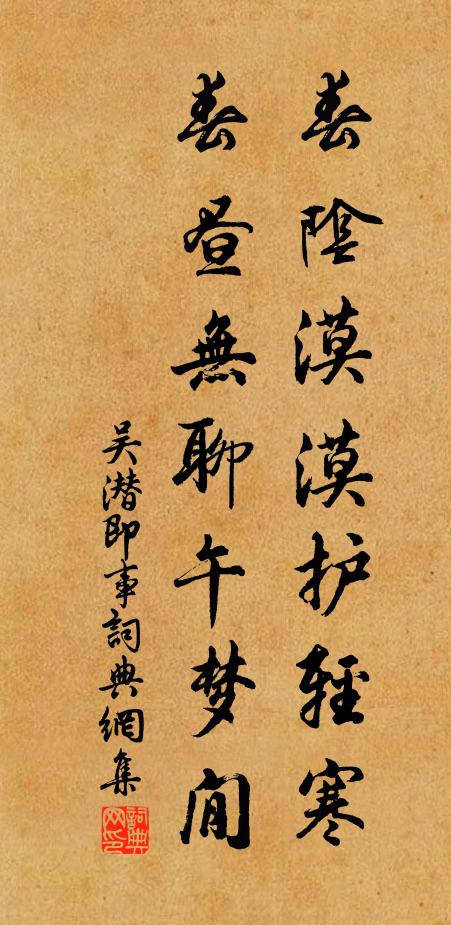 春陰漠漠护輕寒
春昼無聊午梦闲
吴潜即事詞典網集
詞典网印